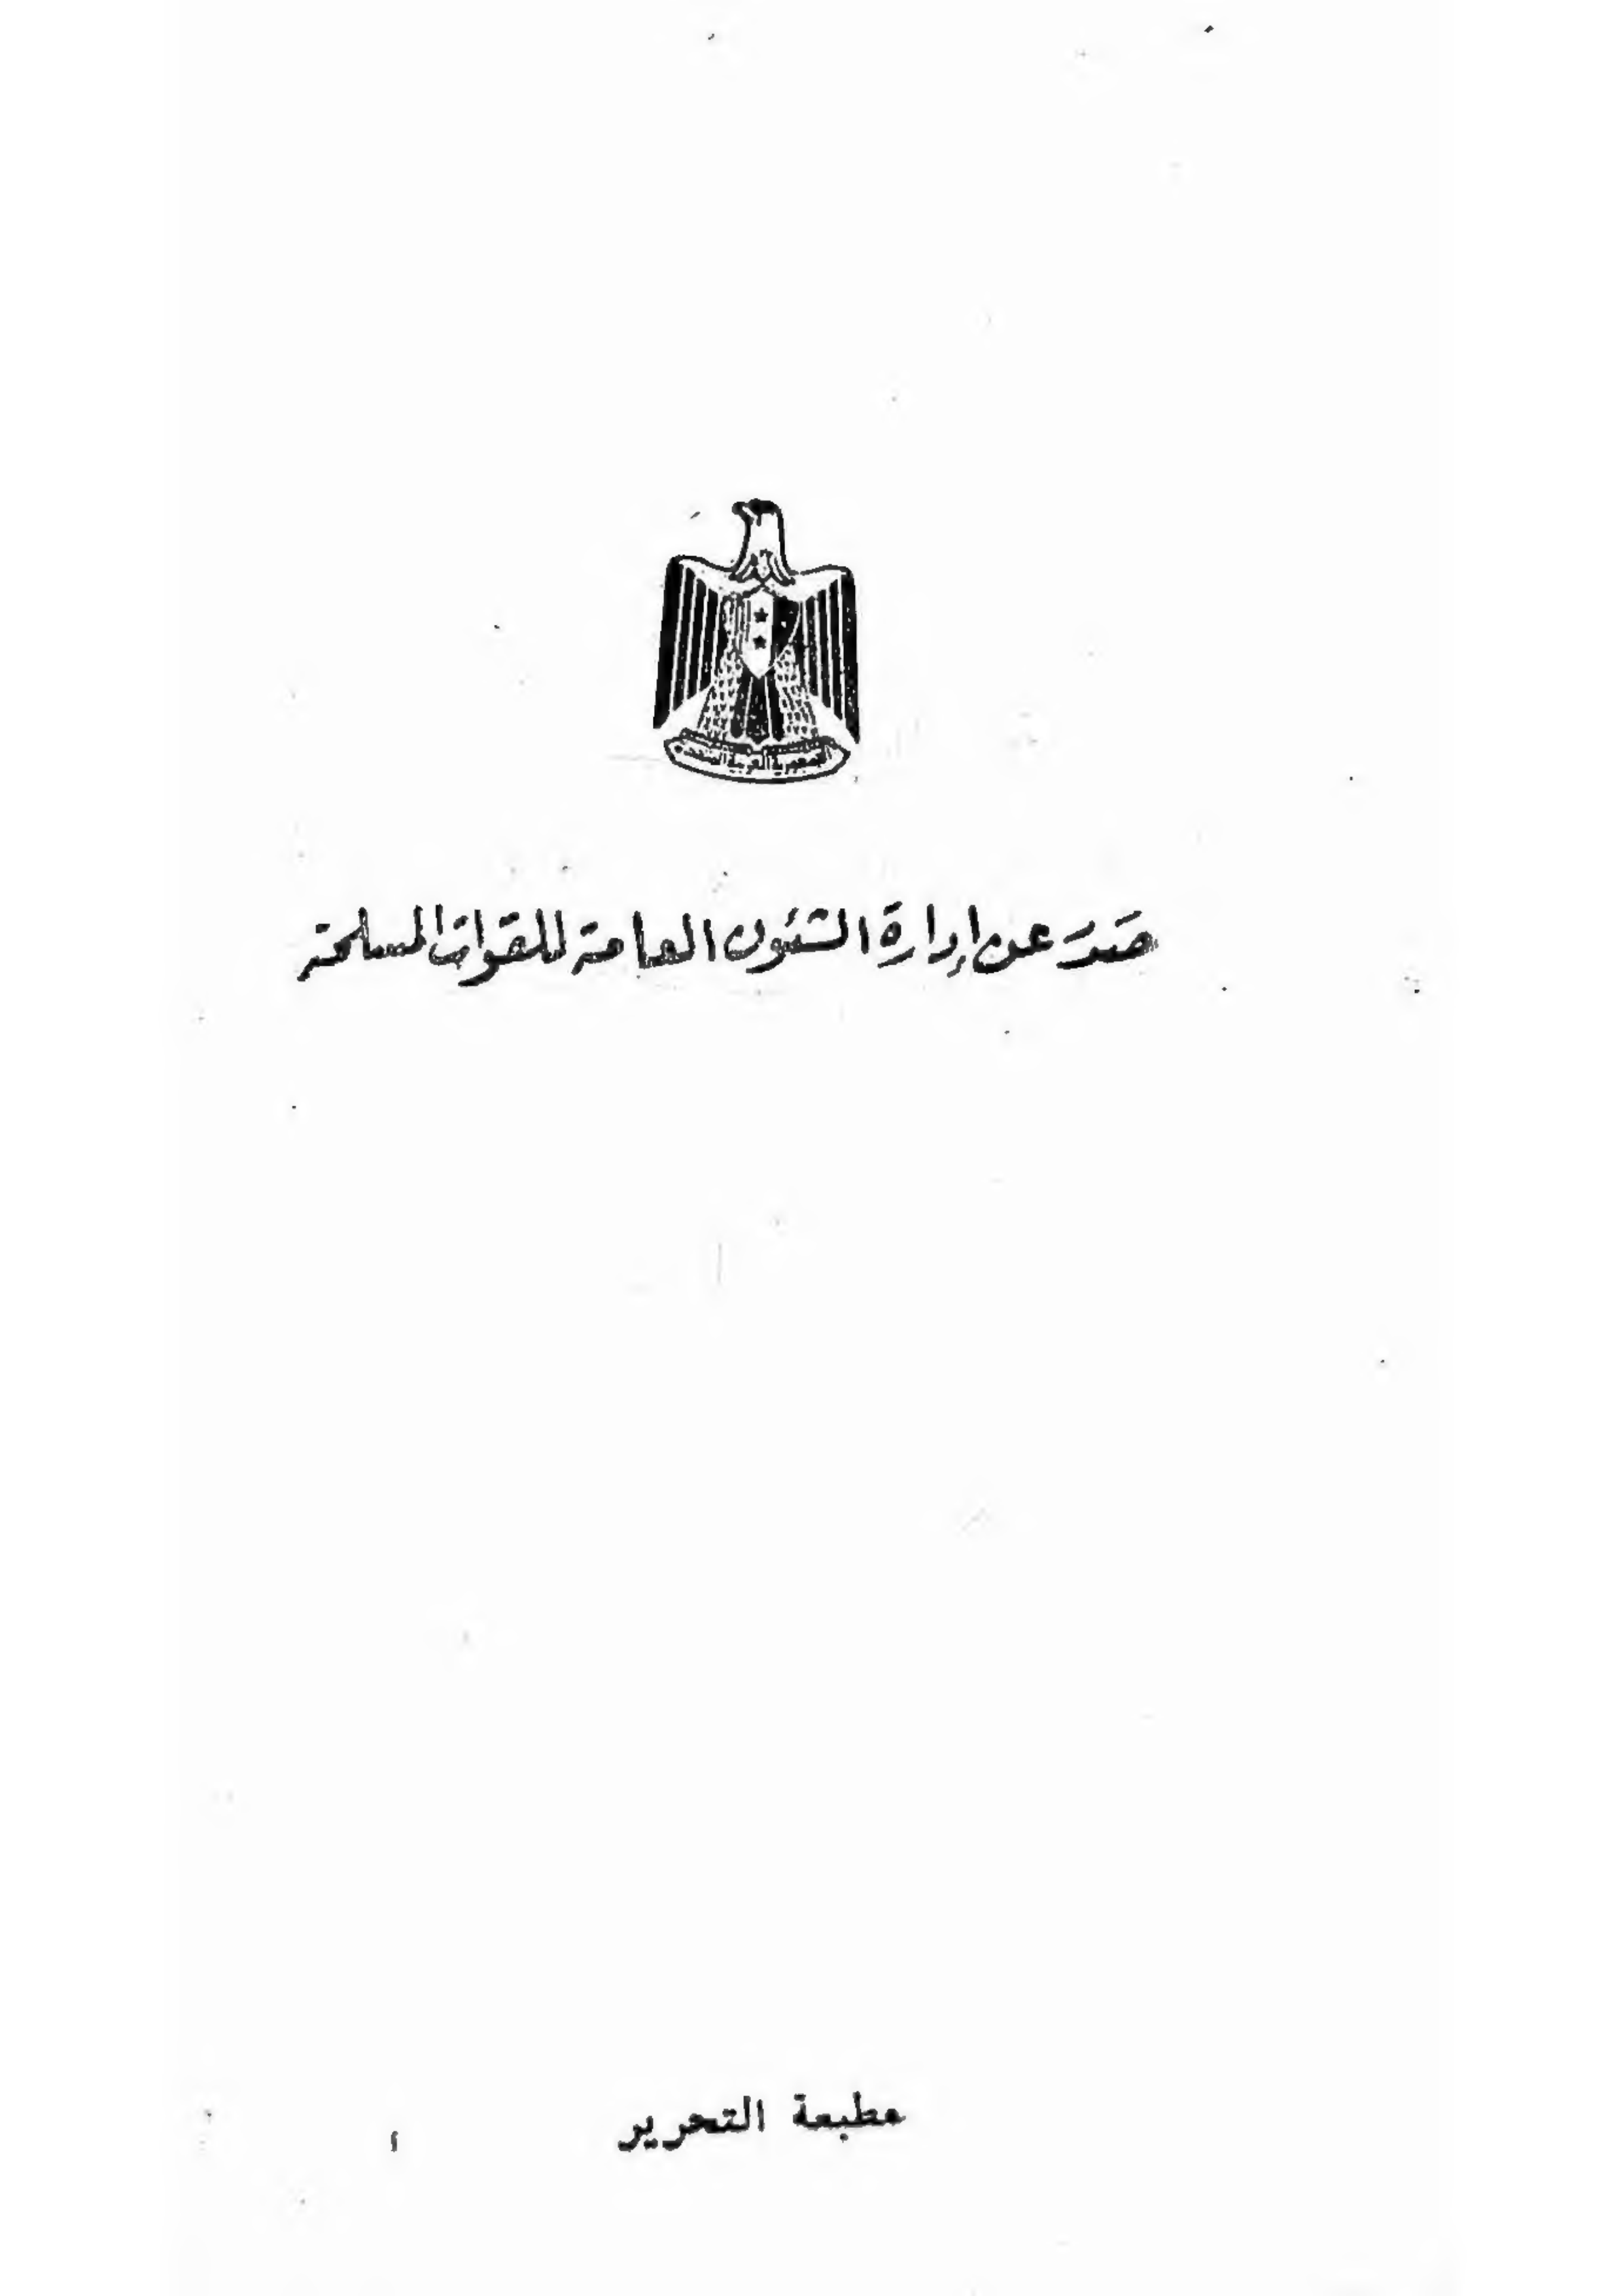 صَدَرَ عن إدارة الشئون العامة للقوات المسلحة
مطبعة التحرير